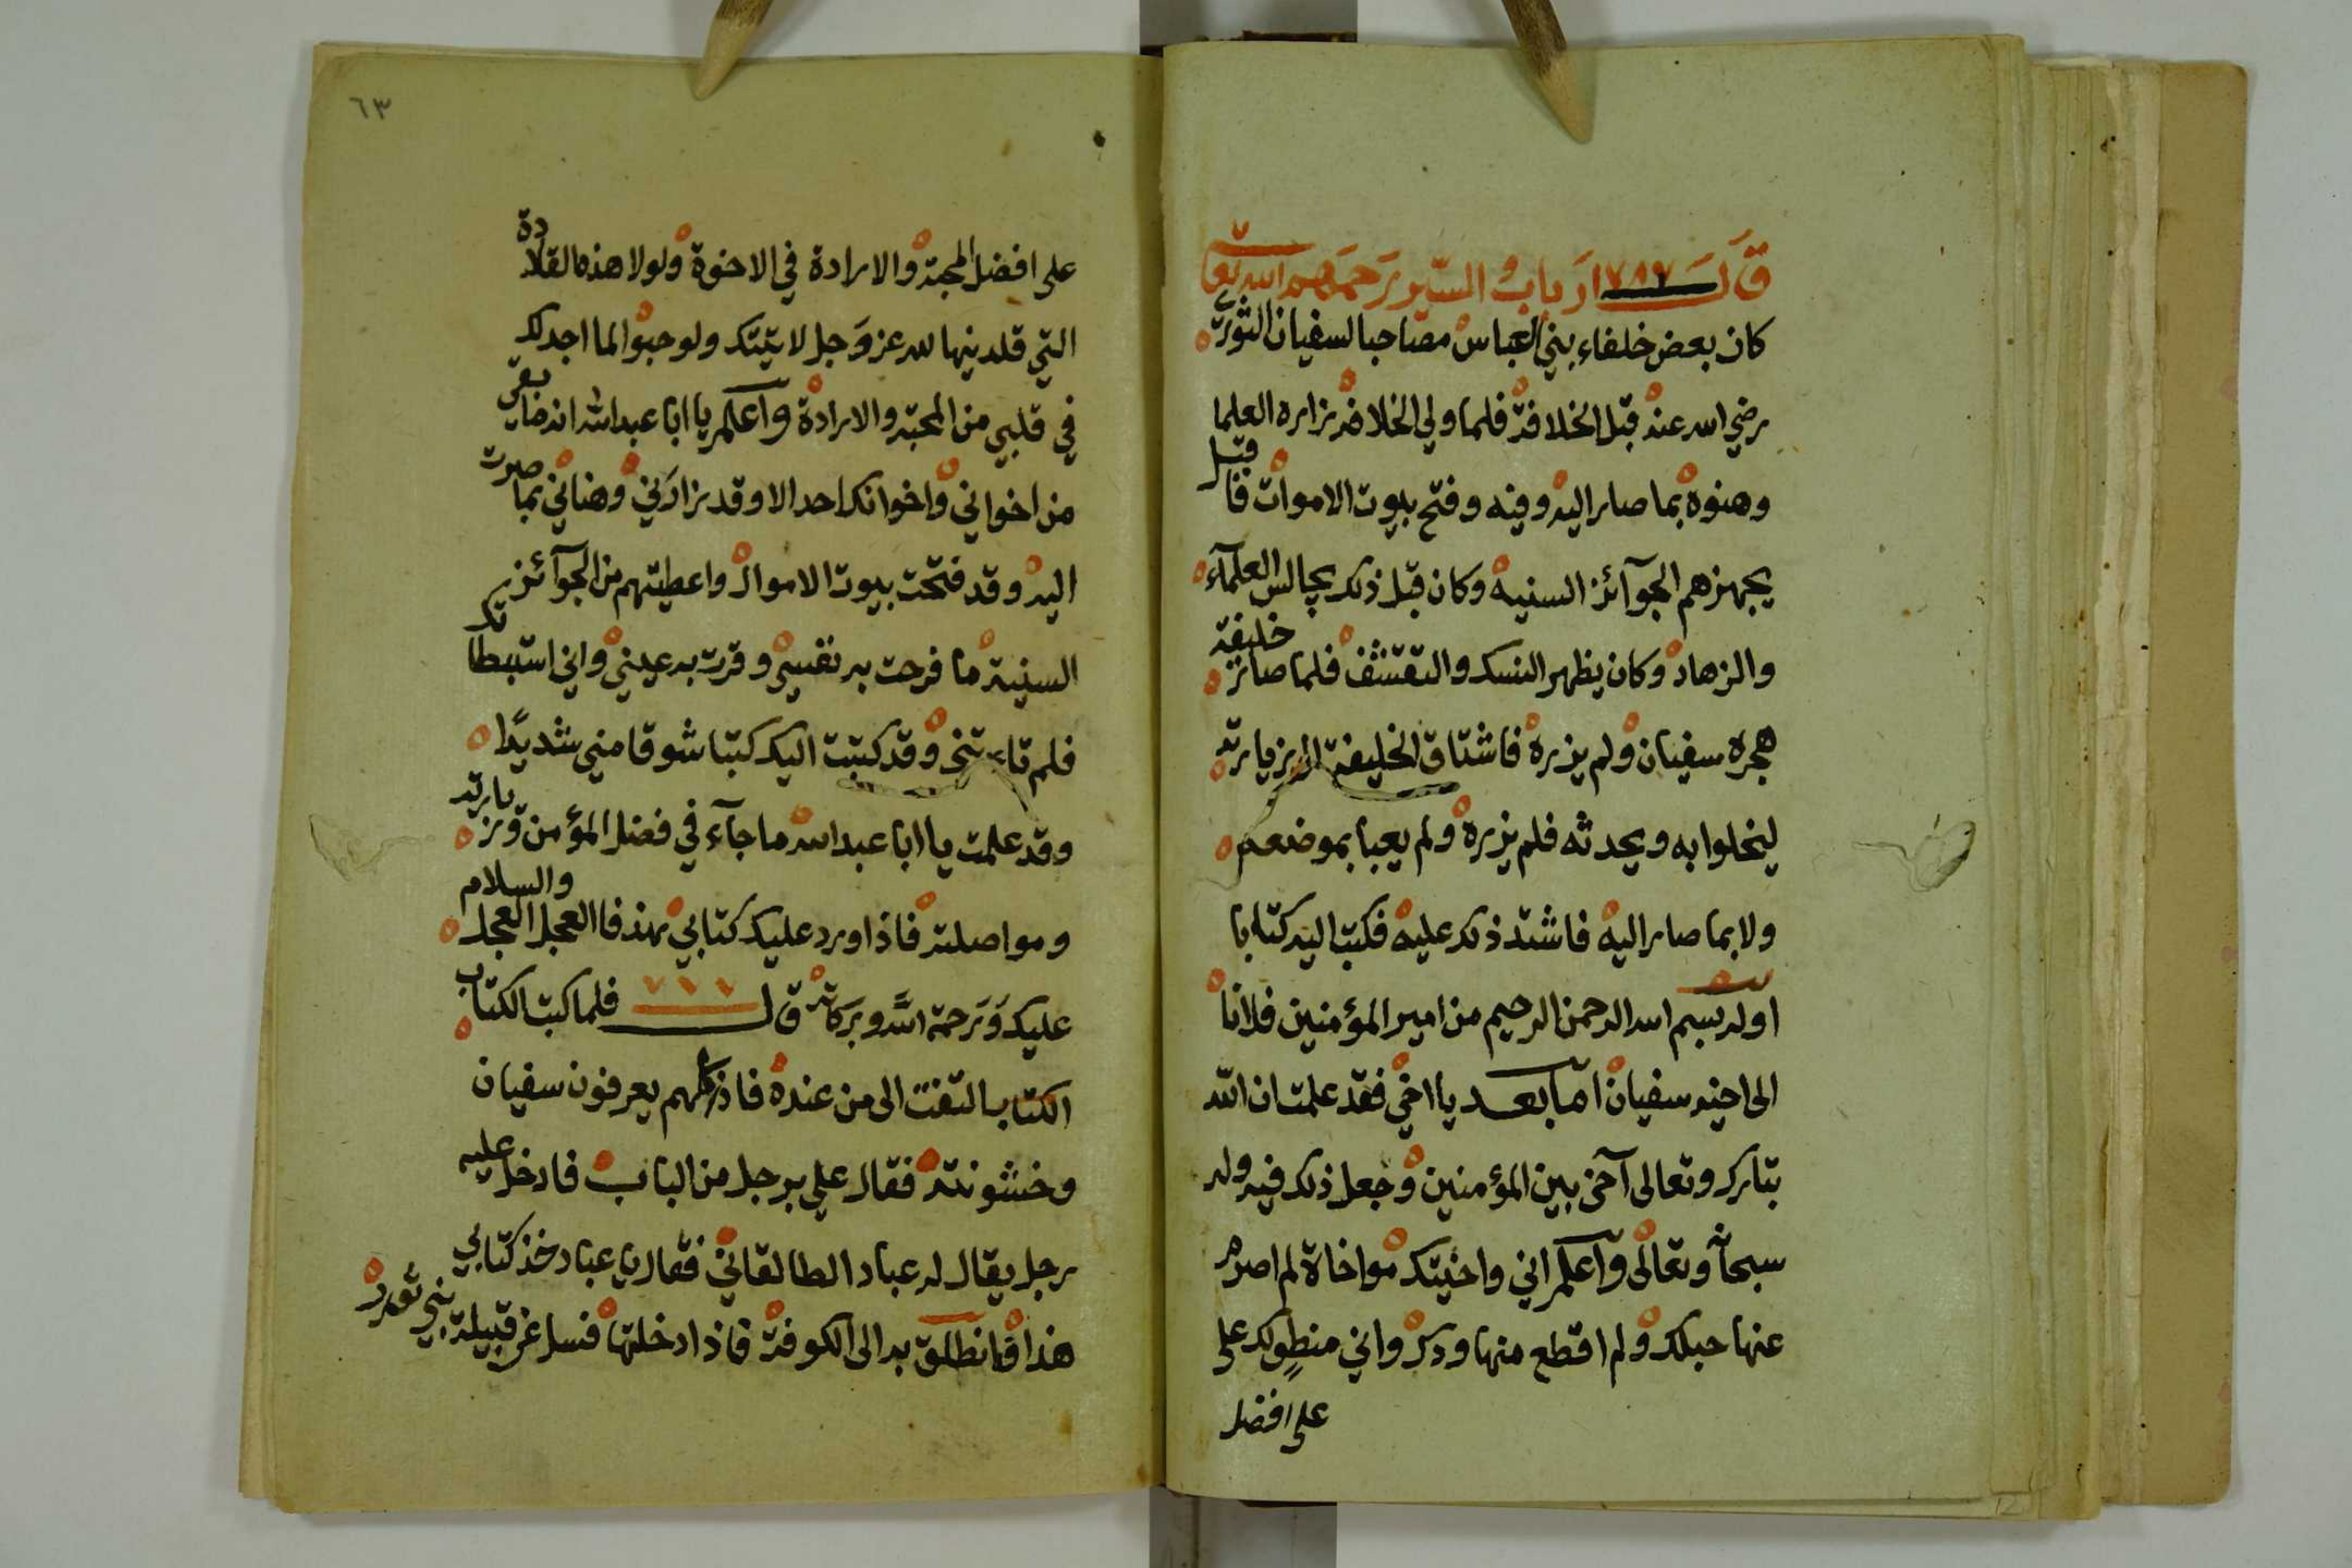 قال ارباب السير رحمهم الله تعا
كان بعض خلفاء بني العباس مصاحبا لسفيان الثوري
رضي الله عنه قبل الخلافة فلما ولي الخلافة زاره العلما
وهنوه بما صار اليه وفيه وفتح بيوت الاموات فاقبل
يجهزهم الجوآئز السنيه وكان قبل ذلك يجالس العلمآء
والزهاد وكان يظهر النسك والتقشف فلما صار خليفة
هجره سفيان ولم يزره فاشتاق الخليفة الى زيارته
ليخلوا به ويحدثه فلم يزره ولم يعبا بموضعه
ولا بما صار اليه فاشتد ذلك عليه فكتب اليه كتابا
اوله بسم الله الرحمن الرحيم من امير المؤمنين فلانا
الى اخيه سفيان اما بعد يا اخي فقد علمت ان الله
تبارك وتعالى آخى بين المؤمنين وجعل ذلك فيه وله
سبحانه وتعالى واعلم اني واخيتك مواخاة لم اصرم
عنها حبلك ولم اقطع منها ودك واني منطو لك على
على افضل
٦٣
على افضل المحبة والارادة في الاخوة ولولا هذه القلادة
التي قلدنيها الله عز وجل لاتيتك ولو حبوا لما اجد لك
في قلبي من المحبة والارادة واعلم يا ابا عبدالله انه ما بقي
من اخواني واخوانك احد الا وقد زارني وهناني بما صرت
اليه وقد فتحت بيوت الاموال واعطيتهم من الجوآئز
السنية ما فرحت به نفسي وقرت به عيني واني استبطاتك
فلم تاءتني وقد كتبت اليك كتبا شوقا مني شديدًا
وقد علمت يا ابا عبد الله ما جآء في فضل المؤمن وزيارته
ومواصلته فاذا ورد عليك كتابي هذ فا العجل العجل والسلام
عليك وَرَحمة اللَّه وبركاته قال فلما كتب الكتاب
الكتاب التفت الى من عنده فاذ كلهم يعرفون سفيان
وخشونته فقال علي برجل من الباب فادخل عليه
رجل يقال له عباد الطالقاني فقال يا عباد خذ كتابي
هذا فانطلق به الى الكوفة فاذا دخلتها فسل عن قبيلة بني ثور